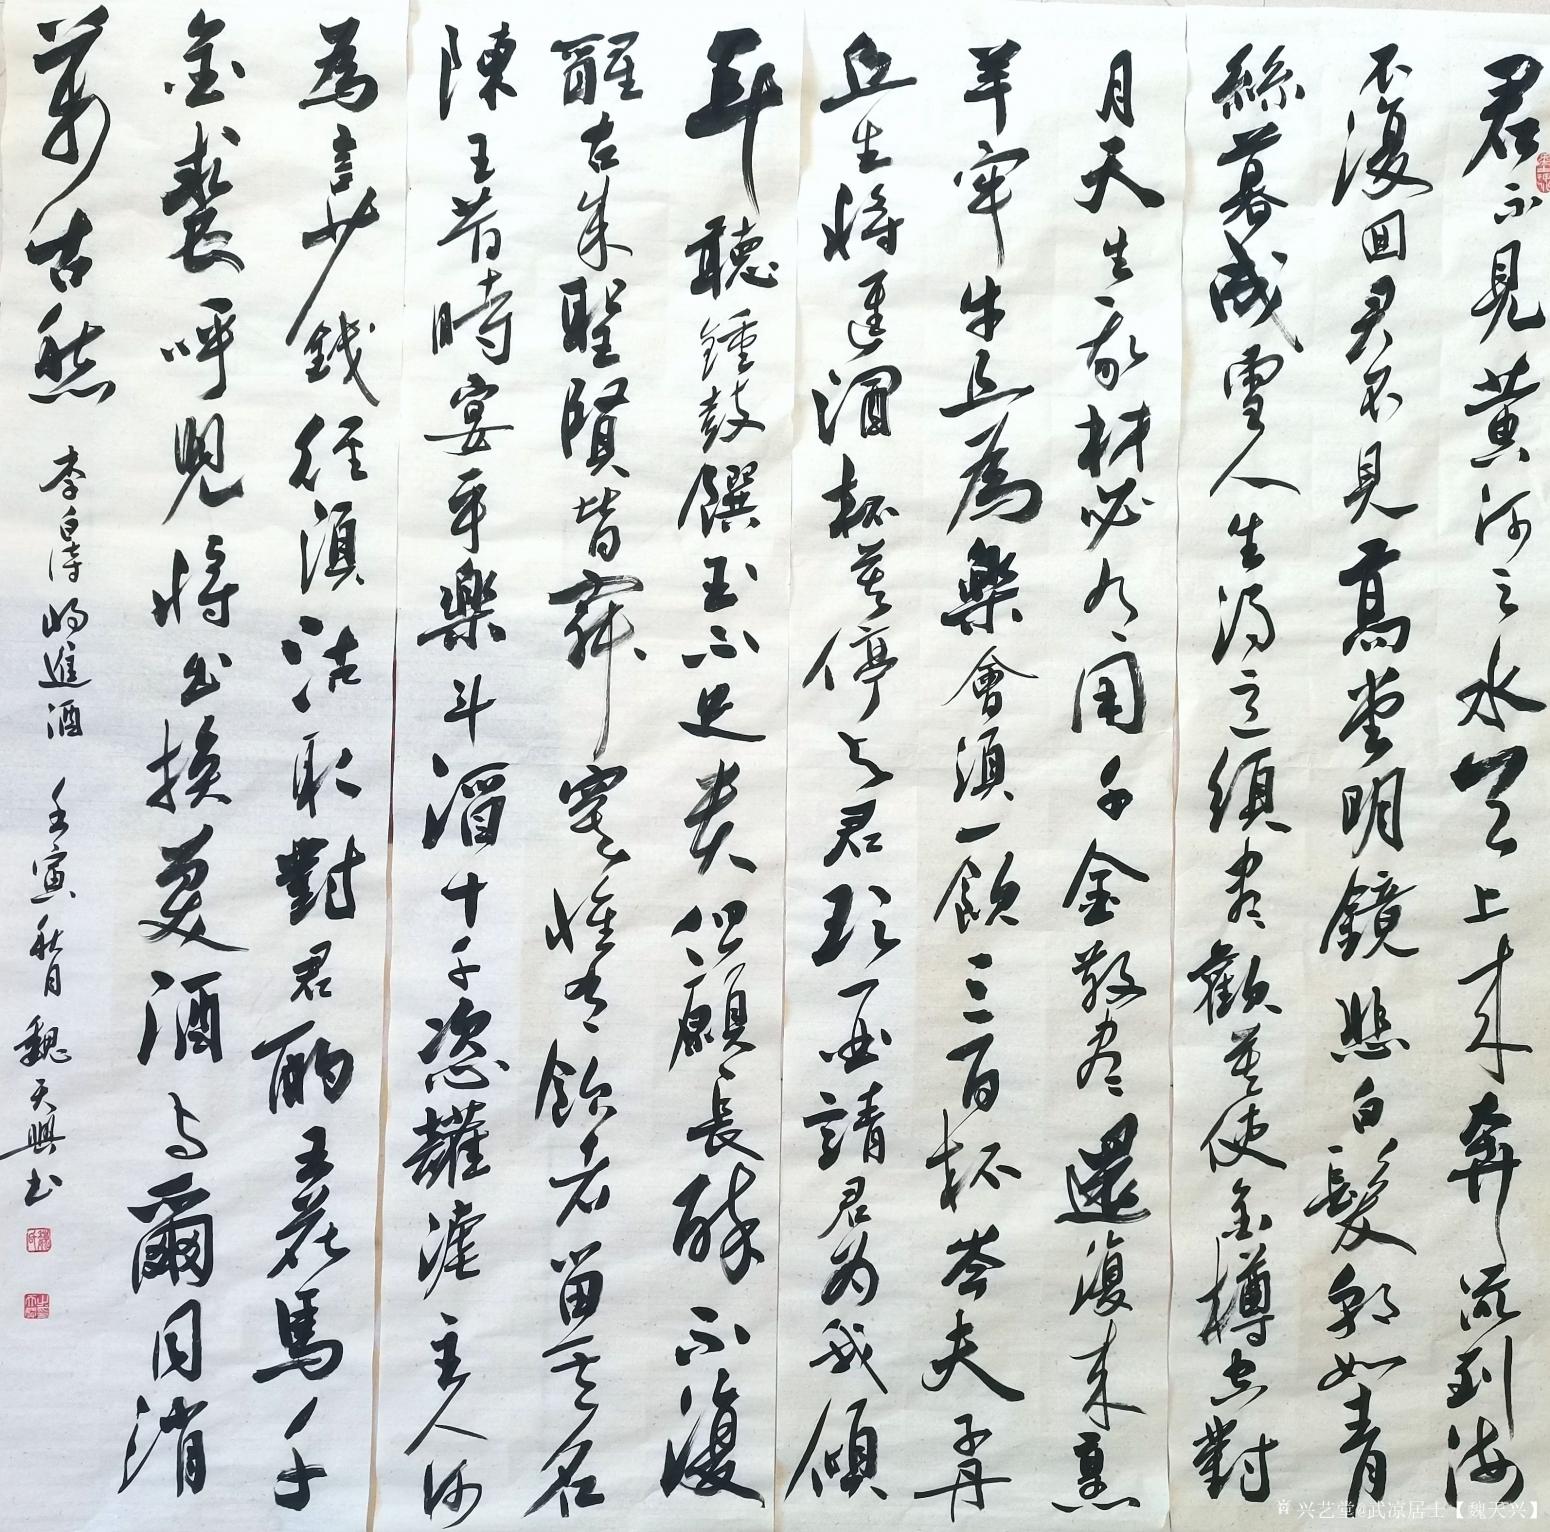 君不見黃河之水天上来奔流到海
不復回君不見高堂明鏡悲白髮朝如青
絲暮成雪人生得意須盡歡莫使金樽空對
月天生我材必有用千金散盡還復来烹
羊宰牛且為樂會須一飲三百杯岑夫子丹
丘生將進酒杯莫停与君歌一曲請君为我傾
耳聽鍾鼓饌玉不足贵但願長醉不復
醒古来聖賢皆寂寞惟有飲者留其名
陳王昔時宴平樂斗酒十千恣讙謔主人何
為言少錢徑須沽取對君酌五花馬千
金裘呼兒將出換美酒与爾同消
萬古愁
李白詩將進酒 壬寅秋月 魏天興书
兴艺堂@武凉居士【魏天兴】